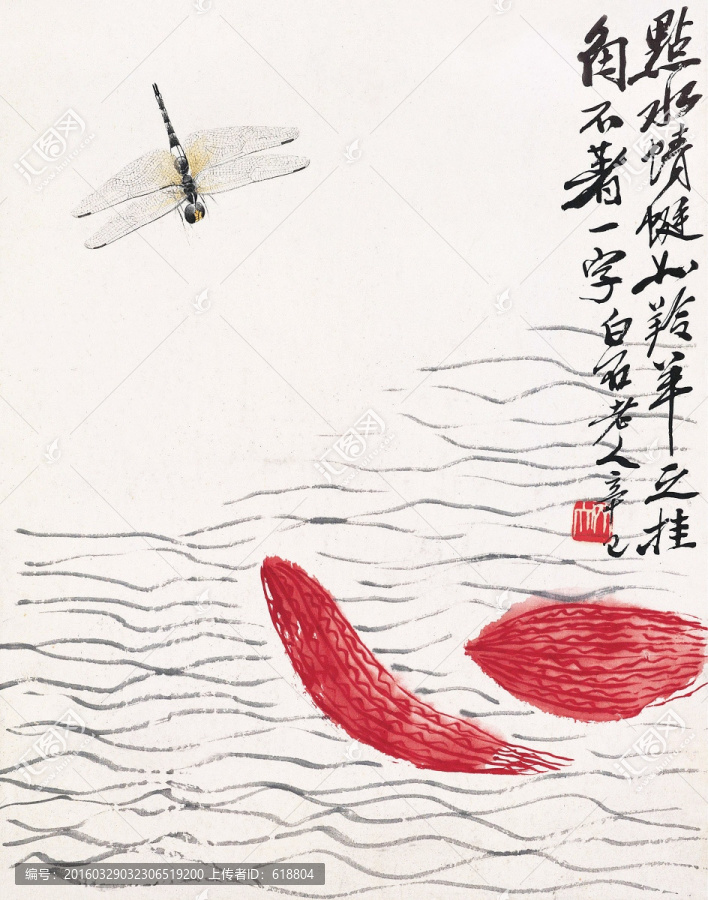 點水蜻蜓如羚羊之挂
角不著一字白石老人辛巳
汇图网
编号：20160329032306519200 上传者ID：618804